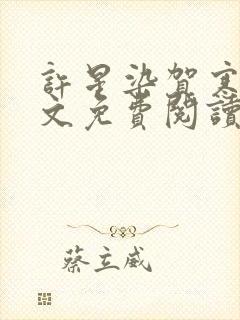 許星染賀寒
文免費閱讀
蔡立威